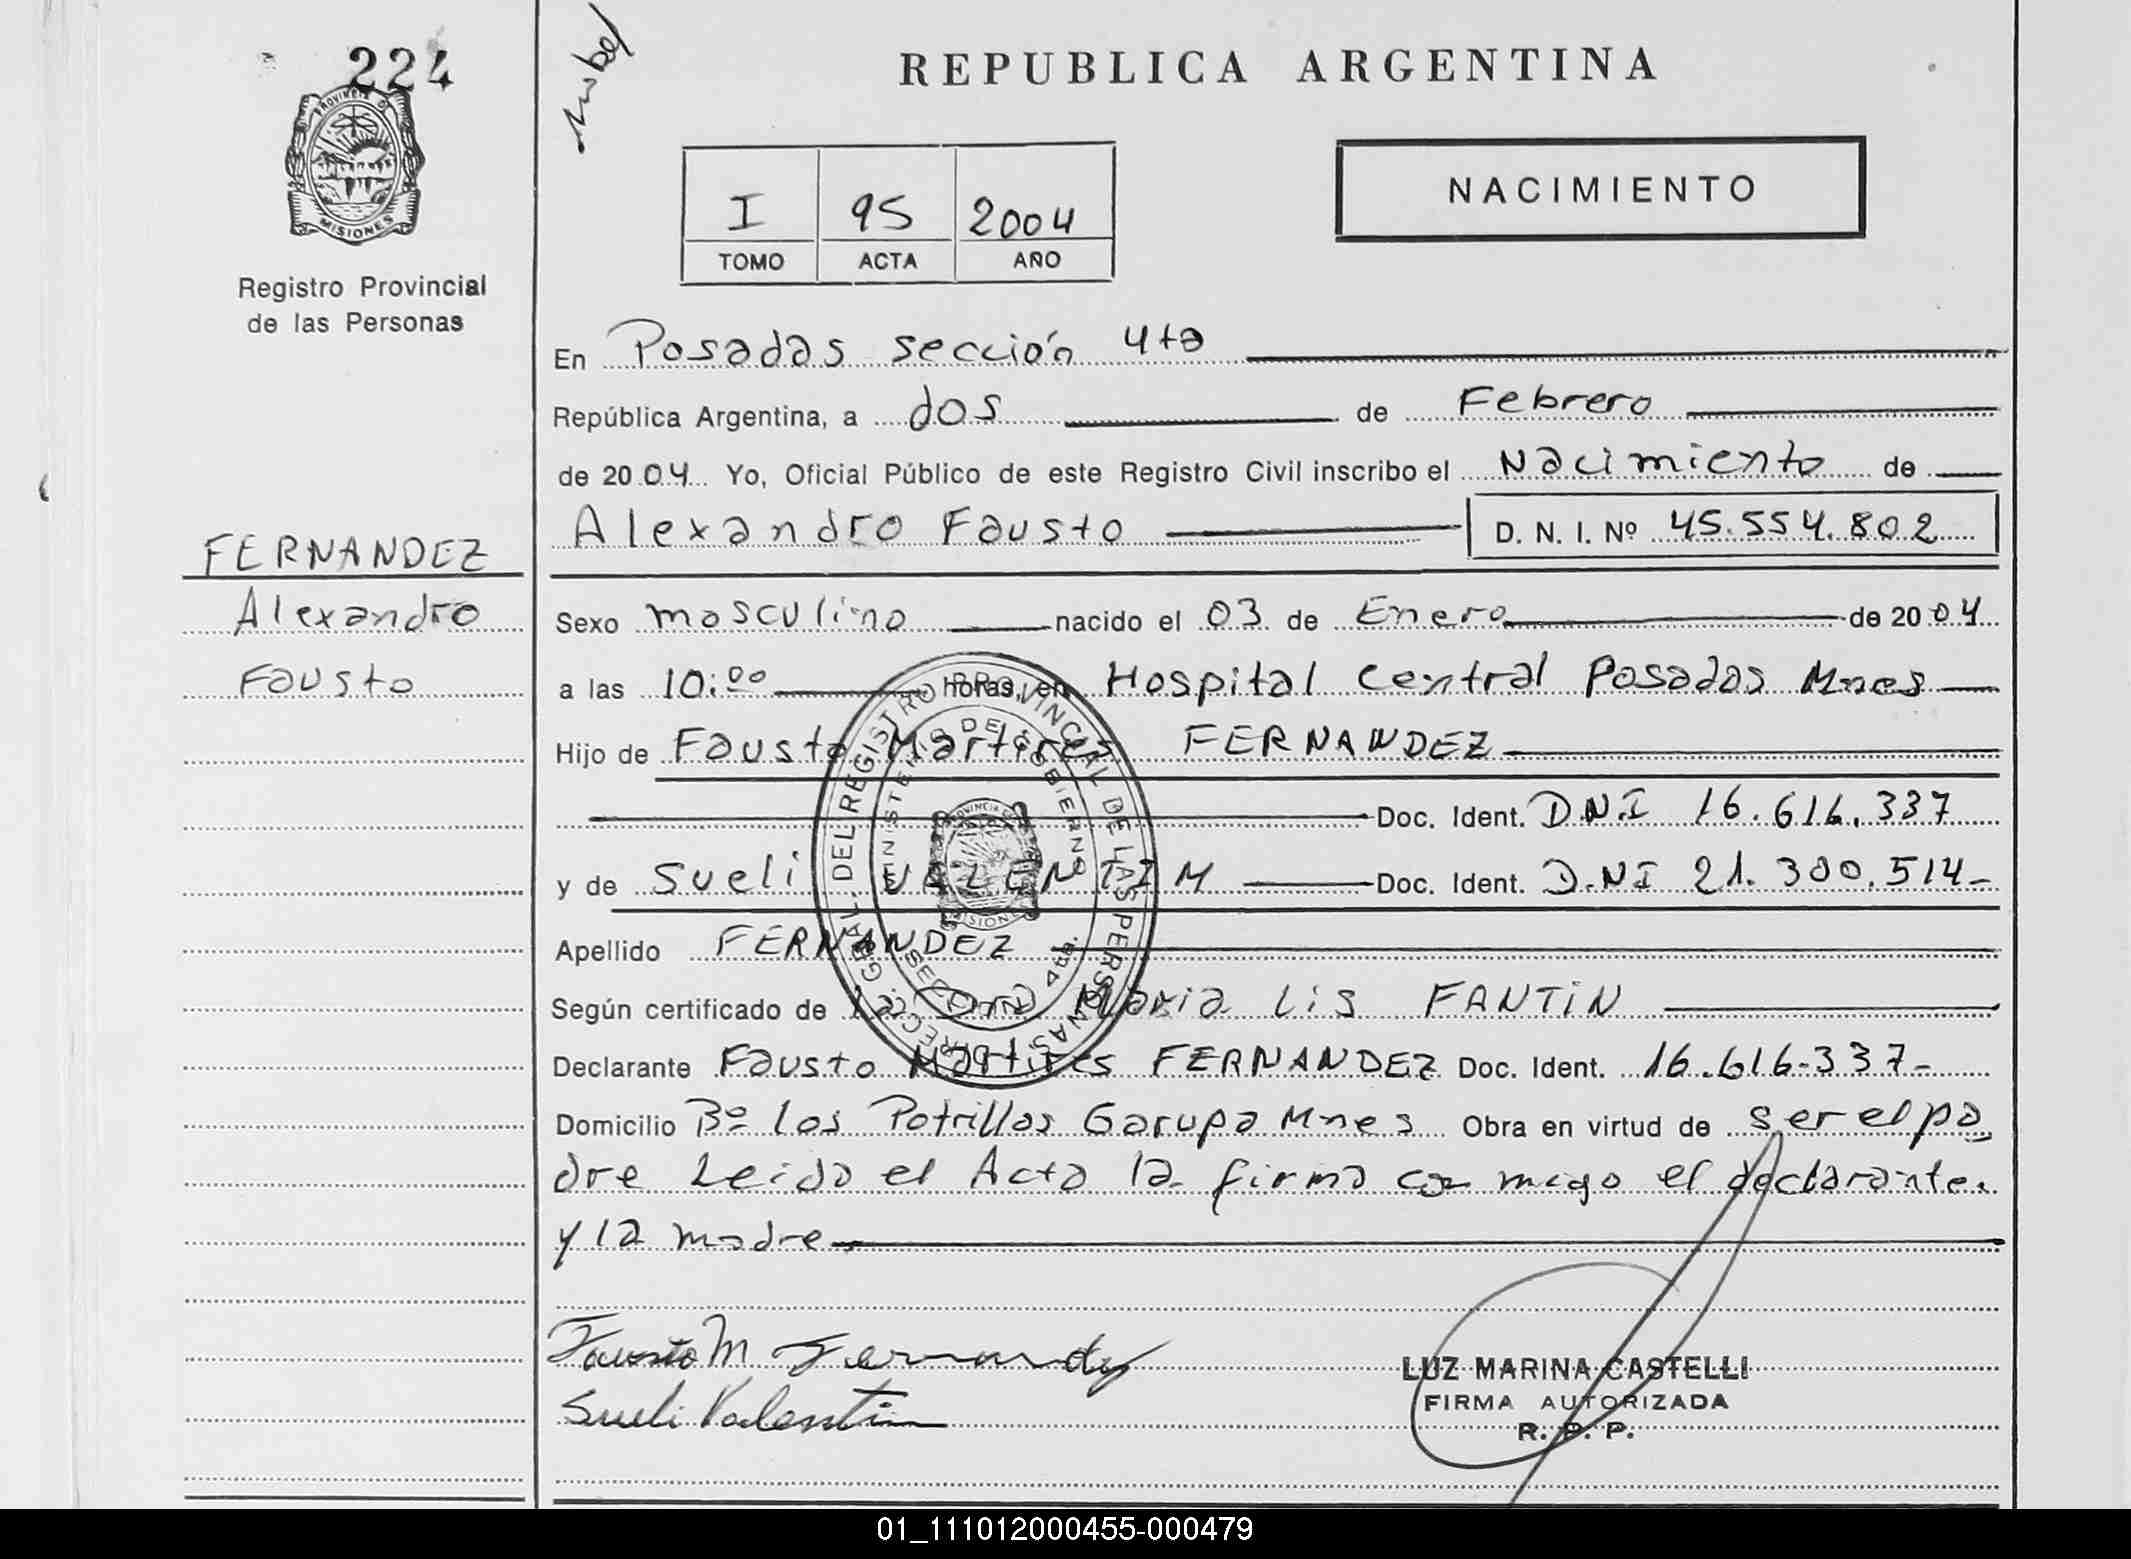 224
PROVINCIA DE
MISIONES
Registro Provincial
de las Personas
FERNANDEZ
Alexandro
Fausto
REPUBLICA ARGENTINA
NACIMIENTO
I 95 2004
TOMO ACTA AÑO
En Posadas sección 4ta
República Argentina, a dos de Febrero
de 2004 Yo, Oficial Público de este Registro Civil inscribo el Nacimiento de
Alexandro Fausto D. N. I. Nº 45.554.802
Sexo masculino nacido el 03 de Enero de 2004
a las 10:00 horas, en Hospital Central Posadas Mnes
Hijo de Fausto Martires FERNANDEZ
Doc. Ident. DNI 16.616.337
y de Sueli VALENTIM Doc. Ident. D.NI 21.300.514-
Apellido FERNANDEZ
Según certificado de la Dra Maria Lis FANTIN
Declarante Fausto Martires FERNANDEZ Doc. Ident. 16.616.337-
Domicilio Bº Los Potrillos Garupa Mnes Obra en virtud de ser el pa
dre Leida el Acta la firma con migo el declarante.
y la madre
DIRECC. GRAL. DEL REGISTRO PROVINCIAL DE LAS PERSONAS
MINISTERIO DE GOBIERNO
SECCION 4ta.
Fausto M Fernandez
Sueli Valentim
LUZ MARINA CASTELLI
FIRMA AUTORIZADA
R. P. P.
01_111012000455-000479